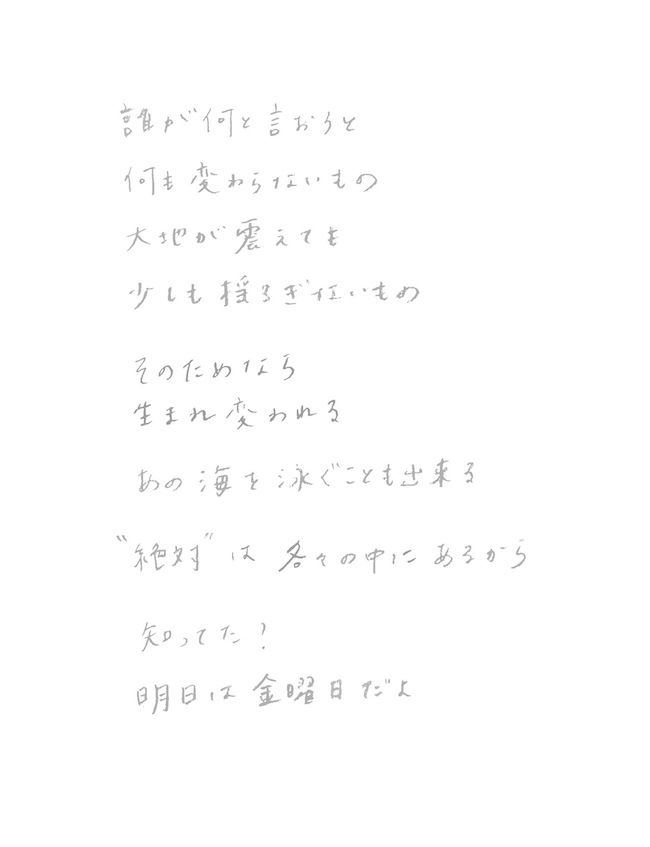 誰が何と言おうと
何も変わらないもの
大地が震えても
少しも揺るぎないもの
そのためなら
生まれ変われる
あの海を泳ぐことも出来る
“絶対”は 各々の中にあるから
知ってた?
明日は金曜日だよ